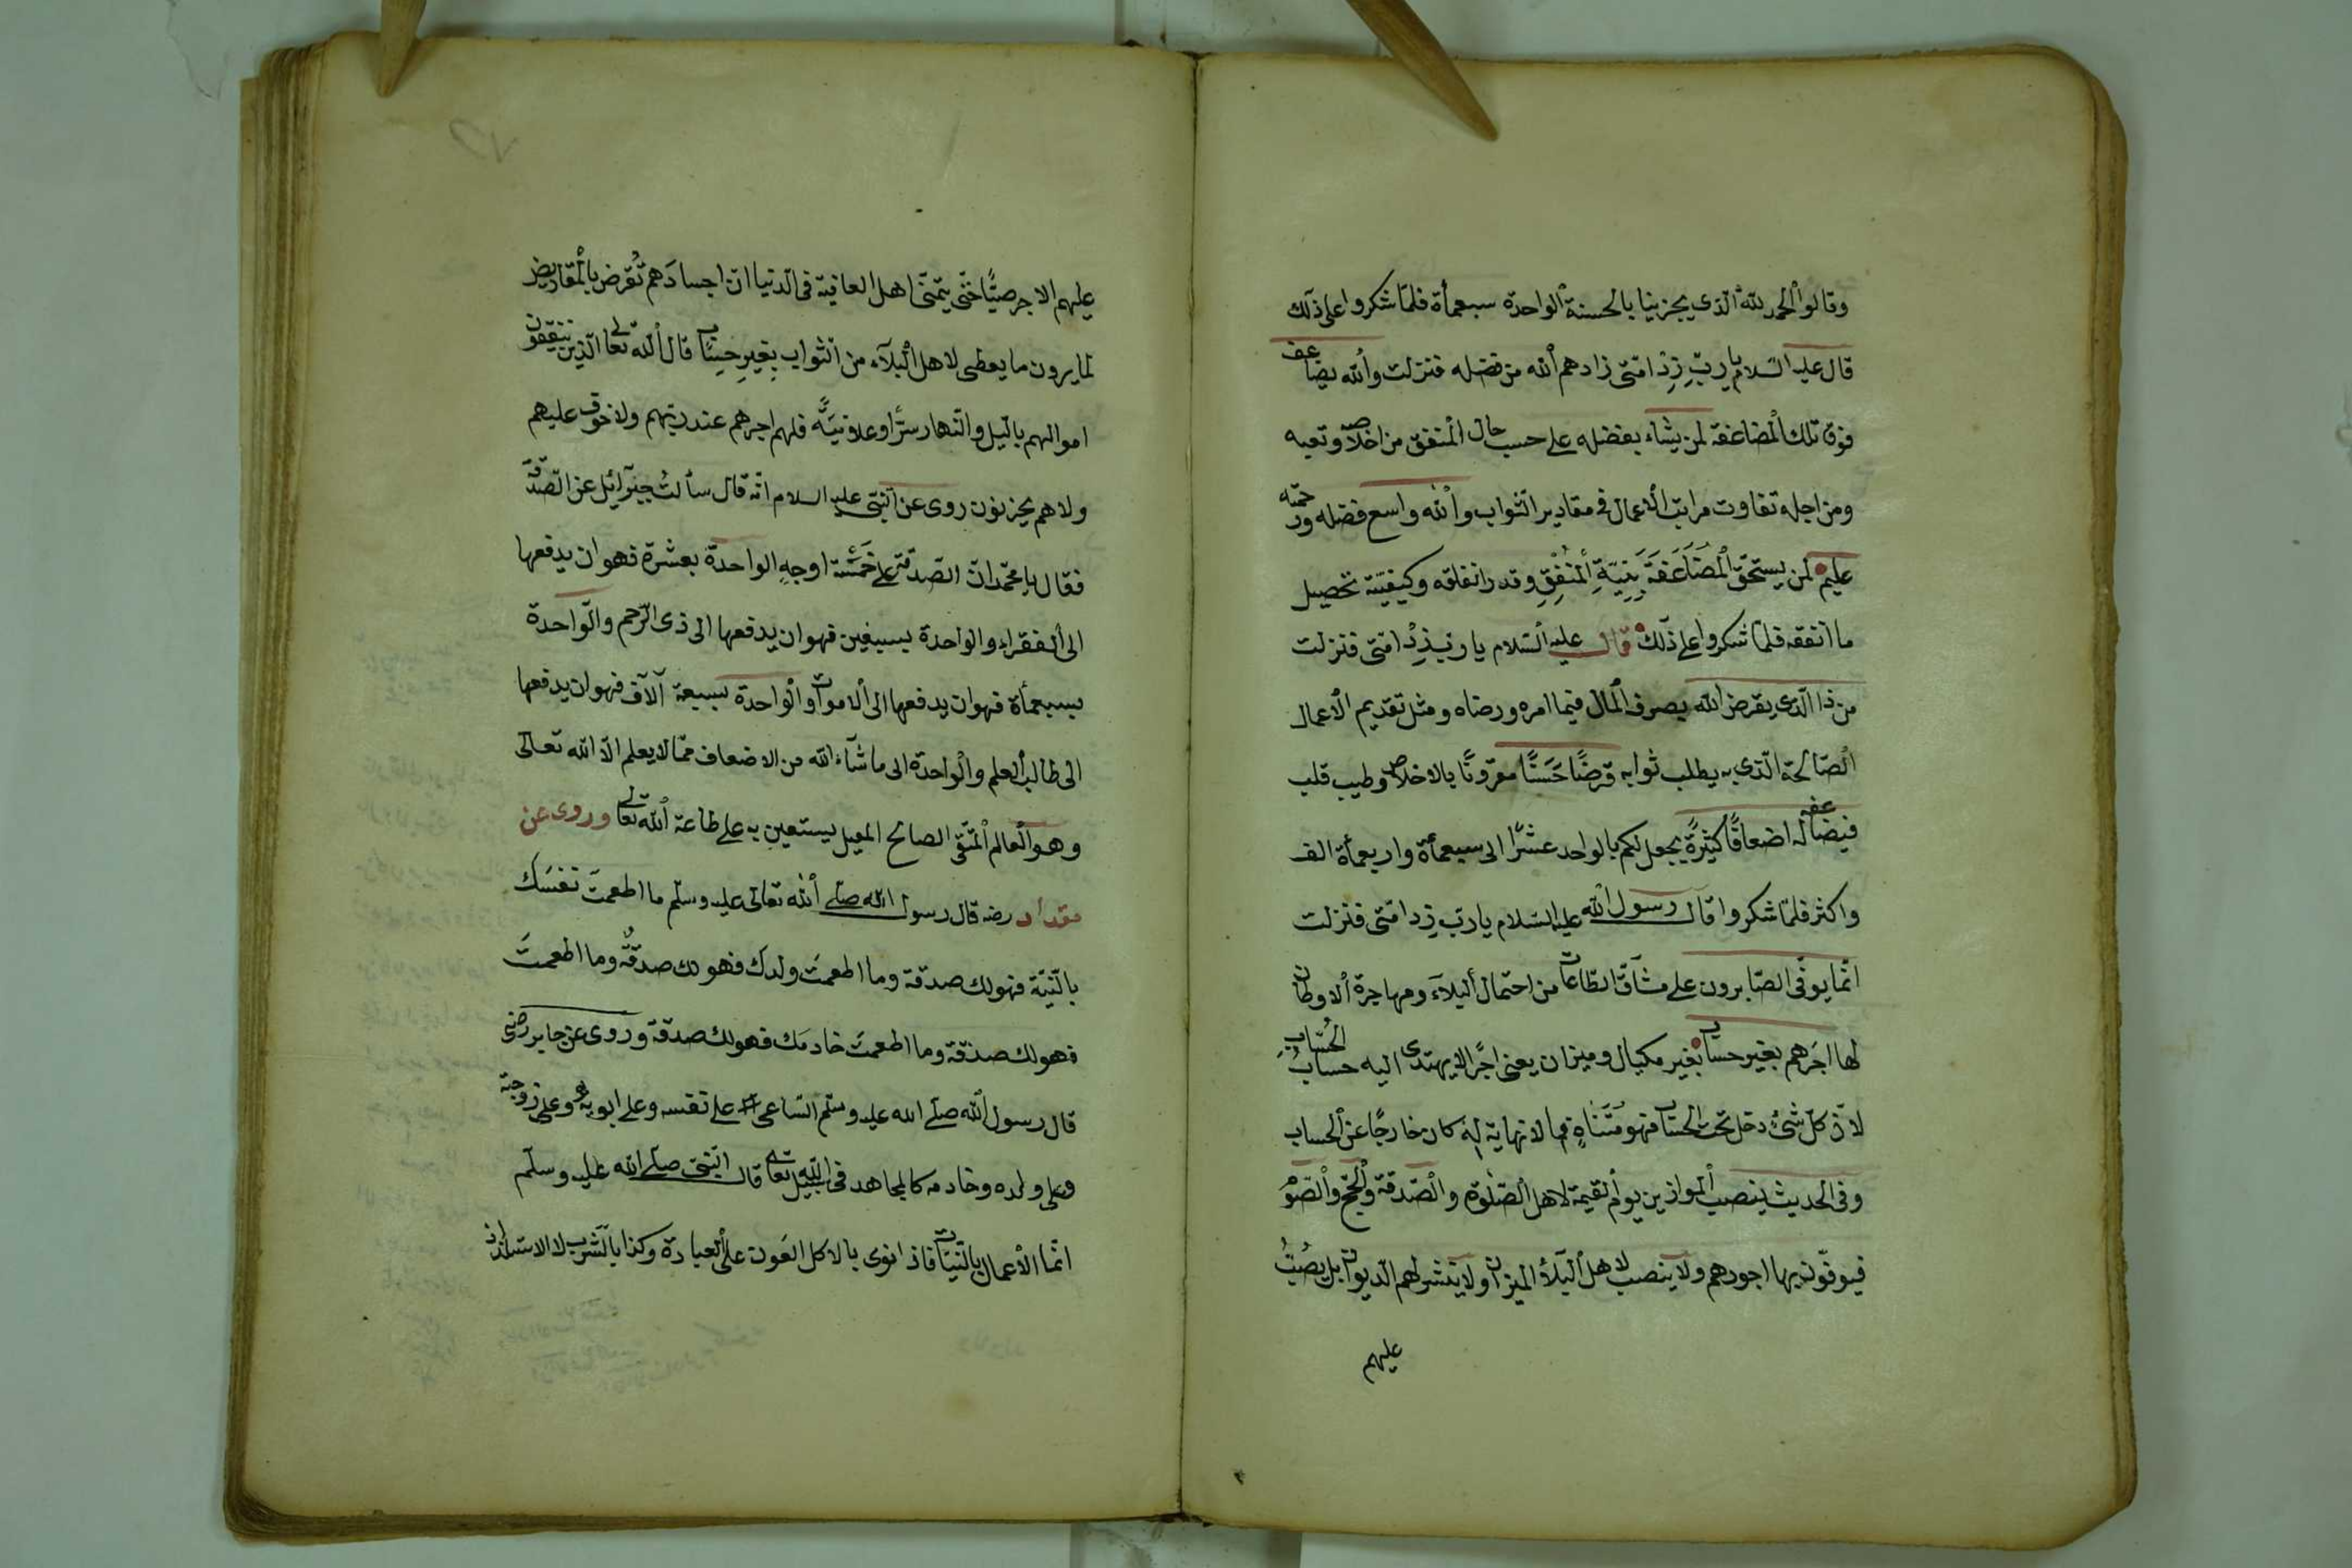 وقالوا الحمد لله الذى يجزينا بالحسنة الواحدة سبعمأة فلمّا شكروا على ذلك
قال عليه السّلام يا ربّ زِدْ امّتى زادهم الله من فضله فنزلت والله يضاعف
فوق تلك المضاعفة لمن يشاء بفضله على حسب حال المنفق من اخلاصه وتعبه
ومن اجله تفاوت مراتب الاعمال فى مقادير الثواب والله واسع فضله ورحمته
عليم لمن يستحقّ المُضَاعَفَةَ بِنِيَّةِ المُنْفِقِ وقدر انفاقه وكيفيّة تحصيل
ما انفقه فلمّا شكروا على ذلك قال عليه السّلام يا ربّ زِدْ امّتى فنزلت
من ذا الّذى يقرض الله بصرف المال فيما امره ورضاه ومثل تقديم الاعمال
الصّالحة الّذى به يطلب ثوابه قرضًا حَسَنًا مقرونًا بالاخلاص وطيب قلب
فيضاعفه له اضعافًا كثيرةً يجعل لكم بالواحد عشرًا الى سبعمأة واربعمأة الف
واكثر فلمّا شكروا قال رسول الله عليه السّلام يا ربّ زد امّتى فنزلت
انّما يوفّى الصّابرون على مشاقّ الطّاعات من احتمال البلآء ومهاجرة الاوطان
لها اجرَهم بغير حساب بغير مكيال وميزان يعنى اجرًا لا يهتدى اليه حسابُ الحُسّابِ
لانّ كلّ شئ دخل تحت الحساب فهو مُتَنَاهٍ فما لا نهاية له كان خارجًا عن الحساب
وفى الحديث ينصب الموازين يوم القيمة لاهل الصّلوة والصّدقة والحجّ والصّوم
فيوفّون بها اجورهم ولا ينصب لاهل البلآء الميزان ولا ينشر لهم الديوان بل يُصَبُّ
عليهم
عليهم الاجر صبًّا حتّى يتمنّى اهل العافية فى الدّنيا انّ اجسادَهم تُقرض بالمقاريض
لما يرون ما يعطى لاهل البلآء من الثواب بِغيرِ حِسابٍ قال الله تعالى الّذين ينفقون
اموالهم باليل والنّهار سرًّا وعلانيَةً فلهم اجرهم عند ربّهم ولا خوف عليهم
ولا هم يحزنون روى عن النبىّ عليه السلام انّه قال سألتُ جبرآئيل عن الصّدقة
فقال يا محمّد انّ الصّدقة على خَمْسَة اوجهِ الواحدة بعشرة فهو ان يدفعها
الى الفقراء والواحدة بسبعين فهو ان يدفعها الى ذى الرّحم والواحدة
بسبعمأة فهو ان يدفعها الى الاموات والواحدة بسبعة آلآف فهو ان يدفعها
الى طالب العلم والواحدة الى ما شآء الله من الاضعاف ممّا لا يعلم الّا الله تعالى
وهو العالم المتّقى الصالح المعيل يستعين به على طاعة الله تعالى وروى عن
مقداد رضه قال رسول الله صلّى الله تعالى عليه وسلّم ما اطعمتَ نفسَك
بالنّيّة فهو لك صدقة وما اطعمتَ ولدك فهو لك صدقةٌ وما اطعمتَ
فهو لك صدقة وما اطعمتَ خادمَك فهو لك صدقة وروى عن جابر رضى
قال رسول الله صلّى الله عليه وسلّم السّاعى على نفسه وعلى ابويه وعلى زوجته
وعلى ولده وخادمه كالمجاهد فى سبيل الله تعالى قال النّبىّ صلّى الله عليه وسلّم
انّما الاعمال بالنّيّات فاذا نوى بالاكل العَون على العبادة وكذا بالشّرب لا الاستلذاذ